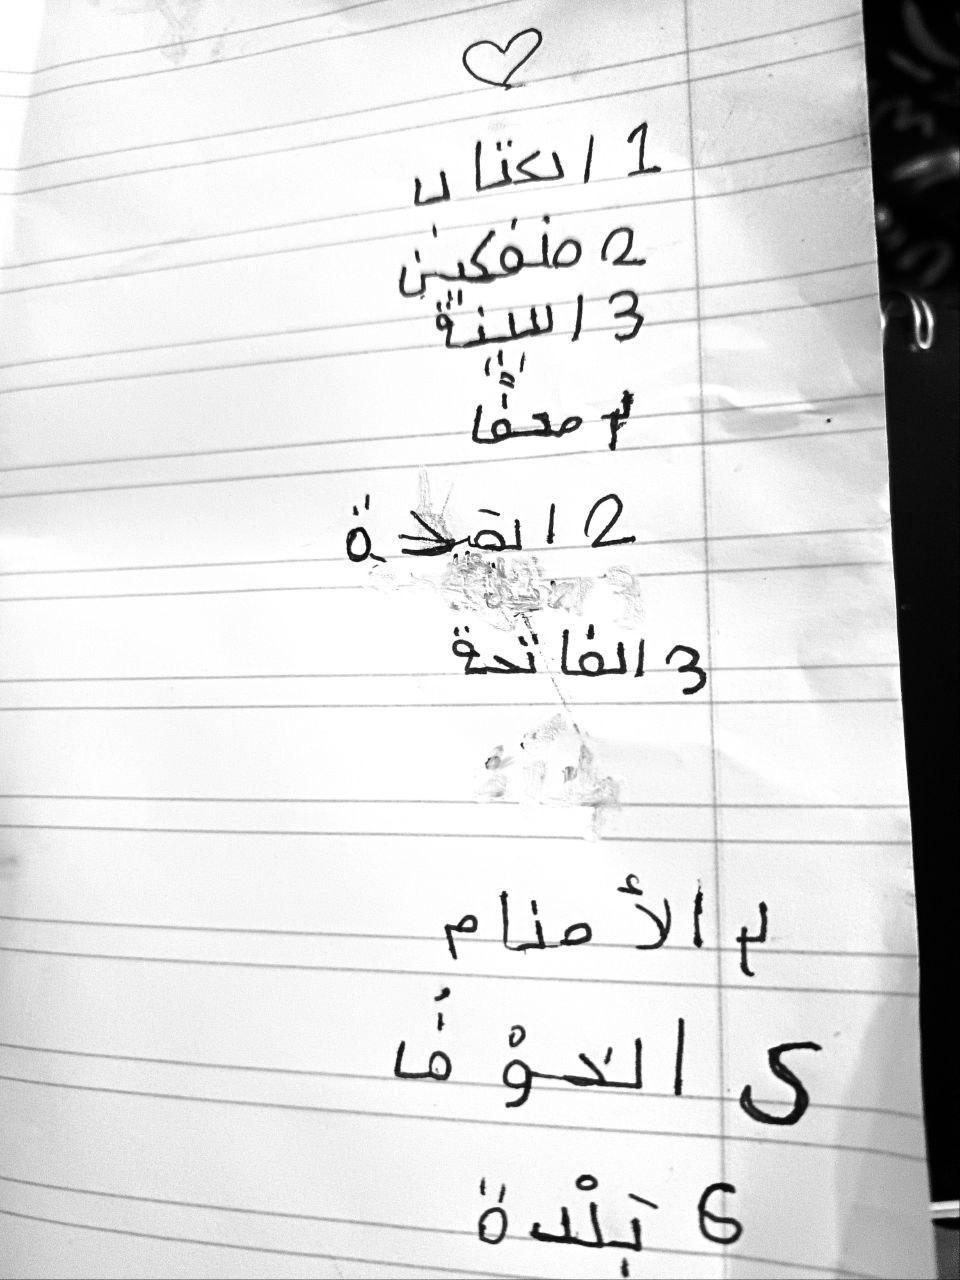 1 الكتاب
2 منفكين
3 السنة
4 صحفا
2 القد ة
3 الفاتحة
4 الأصنام
5 الخوْف
6 بَلْدة